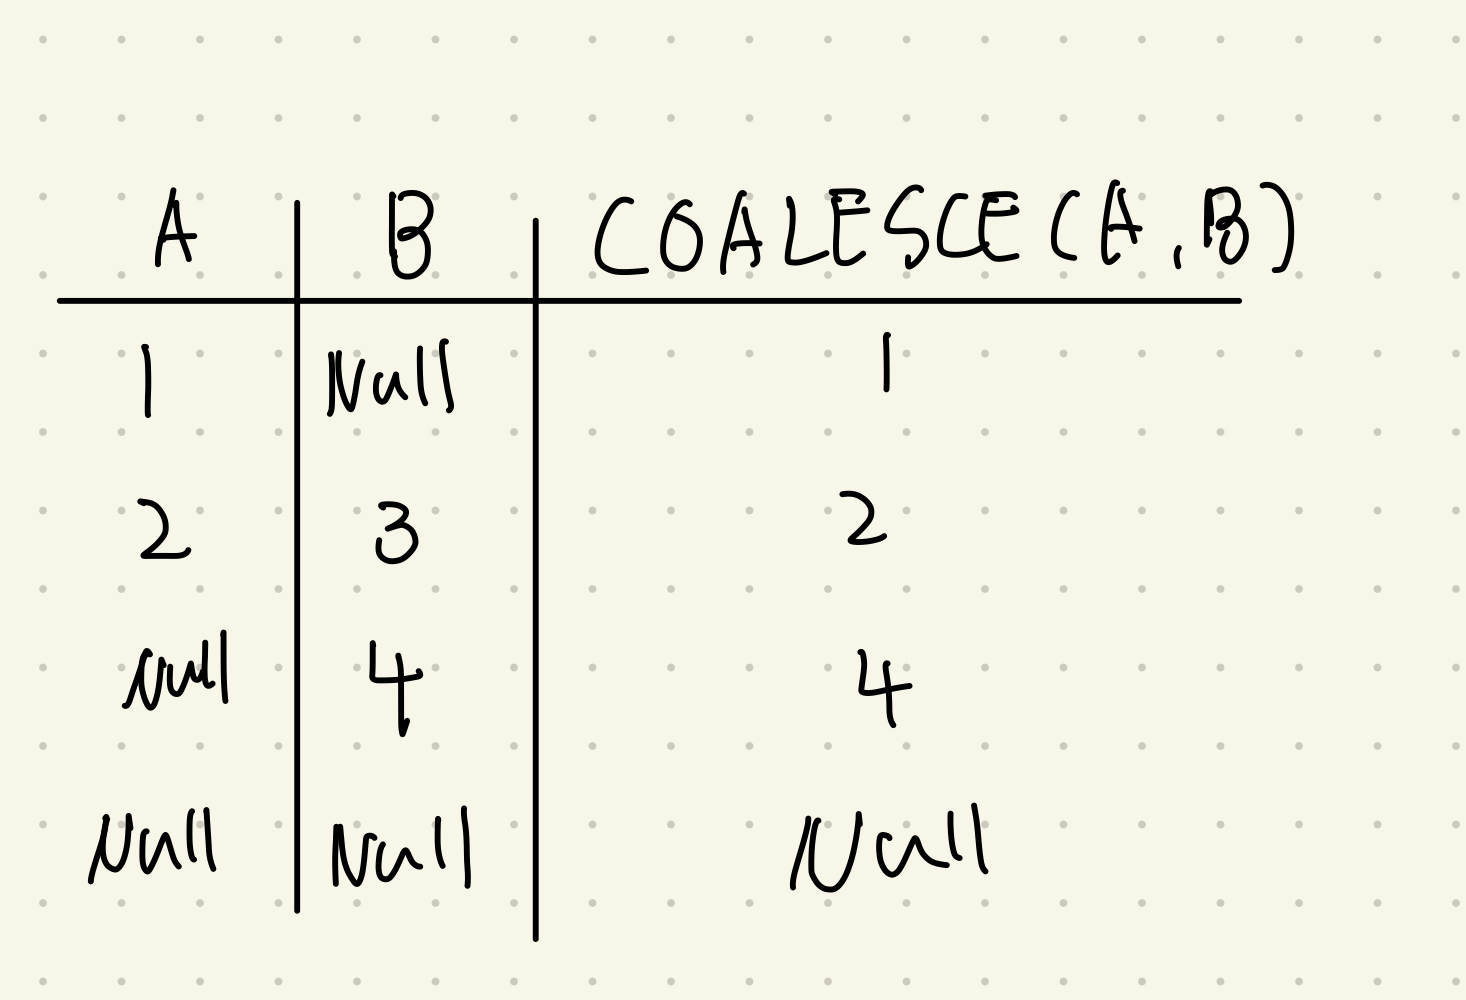 A B COALESCE(A,B)
1 Null 1
2 3 2
null 4 4
Null Null Null